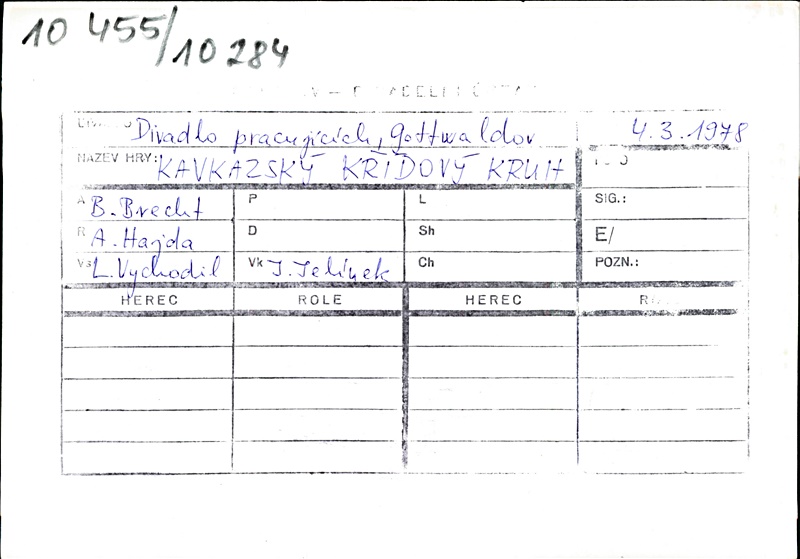 10 455/10 284
Divadlo pracujících, Gottwaldov 4.3.1978
NÁZEV HRY: KAVKAZSKÝ KŘÍDOVÝ KRUH
A B. Brecht P L SIG.:
R A. Hajda D Sh E/
Vs L. Vychodil Vk J. Jelínek Ch POZN.:
HEREC ROLE HEREC